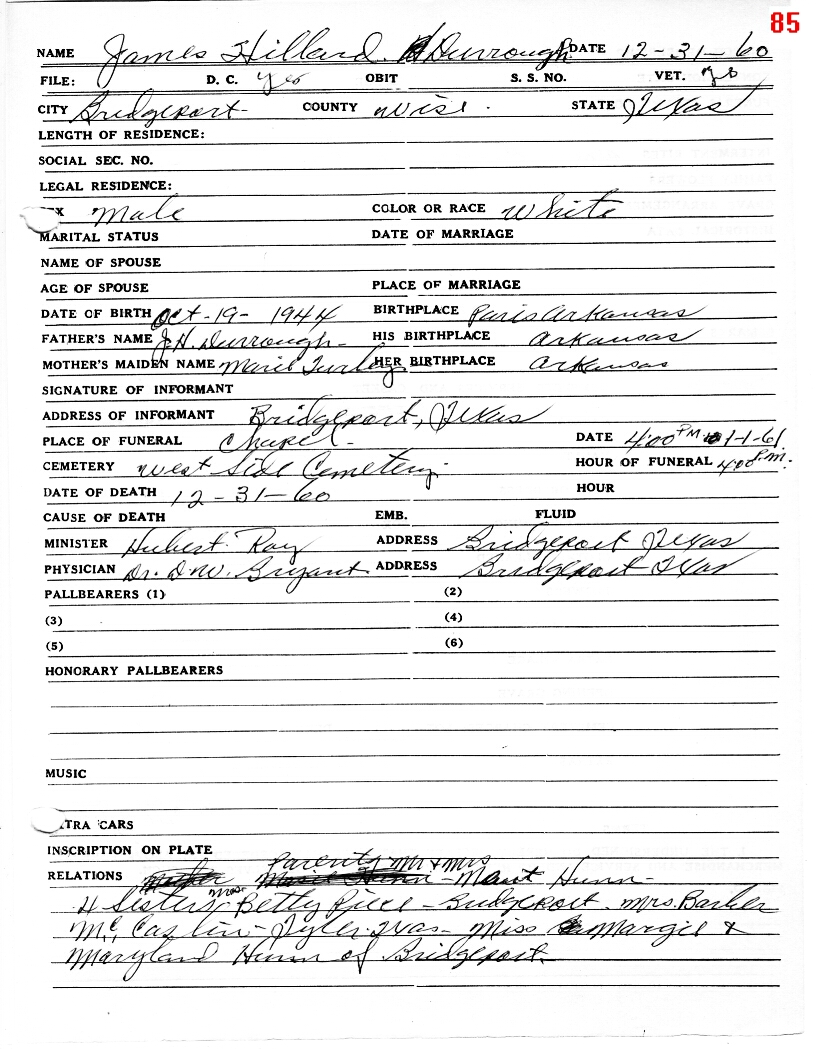 85
NAME James Hillard Durrough DATE 12-31-60
FILE: D. C. yes OBIT S. S. NO. VET.
CITY Bridgeport COUNTY Wise. STATE Texas
LENGTH OF RESIDENCE:
SOCIAL SEC. NO.
LEGAL RESIDENCE:
X Male COLOR OR RACE White
MARITAL STATUS DATE OF MARRIAGE
NAME OF SPOUSE
AGE OF SPOUSE PLACE OF MARRIAGE
DATE OF BIRTH Oct-19-1944 BIRTHPLACE Paris Arkansas
FATHER'S NAME J.H. Durrough- HIS BIRTHPLACE Arkansas
MOTHER'S MAIDEN NAME Marie Turley HER BIRTHPLACE Arkansas
SIGNATURE OF INFORMANT
ADDRESS OF INFORMANT Bridgeport, Texas
PLACE OF FUNERAL Chapel- DATE 4:00 PM 1-1-61
CEMETERY West Side Cemetery. HOUR OF FUNERAL 4:00 P.M.
DATE OF DEATH 12-31-60 HOUR
CAUSE OF DEATH EMB. FLUID
MINISTER Hubert Ray ADDRESS Bridgeport Texas
PHYSICIAN Dr. D.W. Bryant ADDRESS Bridgeport Texas
PALLBEARERS (1) (2)
(3) (4)
(5) (6)
HONORARY PALLBEARERS
MUSIC
TRA CARS
INSCRIPTION ON PLATE
Parents Mr & Mrs
RELATIONS Hunn-
4 Sisters, Mrs. Betty - Bridgeport. Mrs.
Mc Caslin- Tyler Texas- Miss Margie &
Maryland Hunn of Bridgeport.